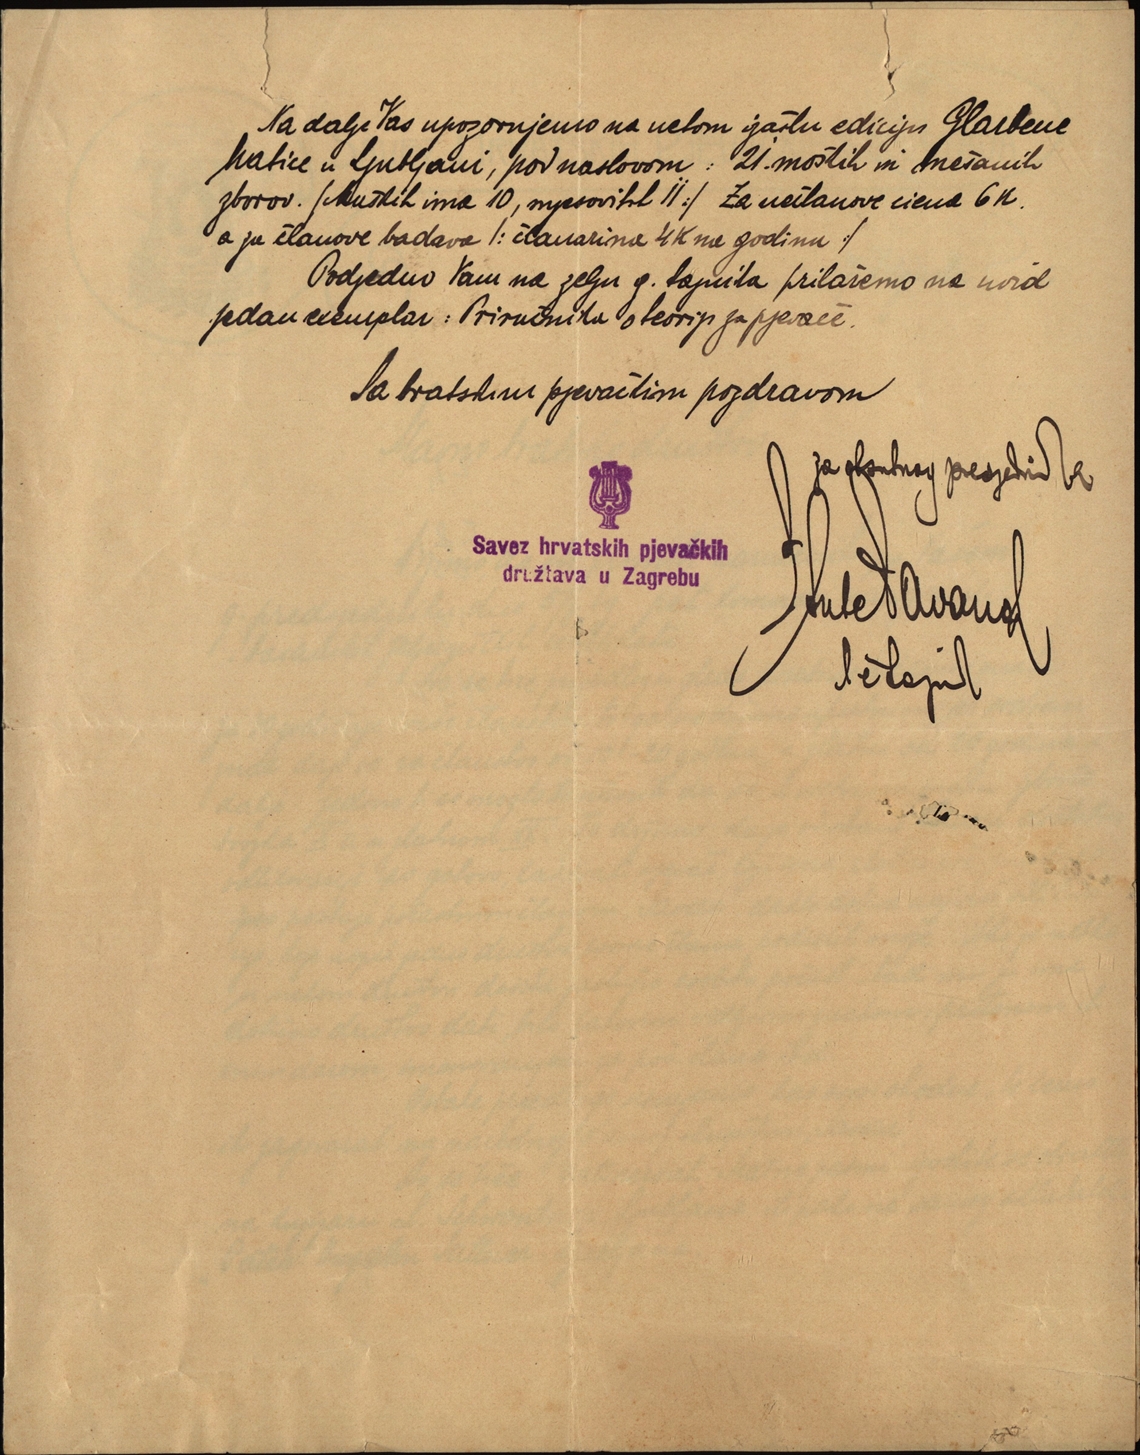 Na dalje Vas upozorujemo na netom izašlu ediciju Glasbene
Matice u Ljubljani, pod naslovom : 21. moških in mešanih
zborov. /: Muških ima 10, mješovitih 11 :/ Za nečlanove ciena 6 K.
a za članove badava /: članarina 4 K na godinu :/
Podjedno Vam na želju g. tajnika prilažemo na uvid
jedan exemplar : Priručnika o teoriji za pjevače.
Sa bratskim pjevačkim pozdravom
za predsjednika
Savez hrvatskih pjevačkih
društava u Zagrebu
tajnik